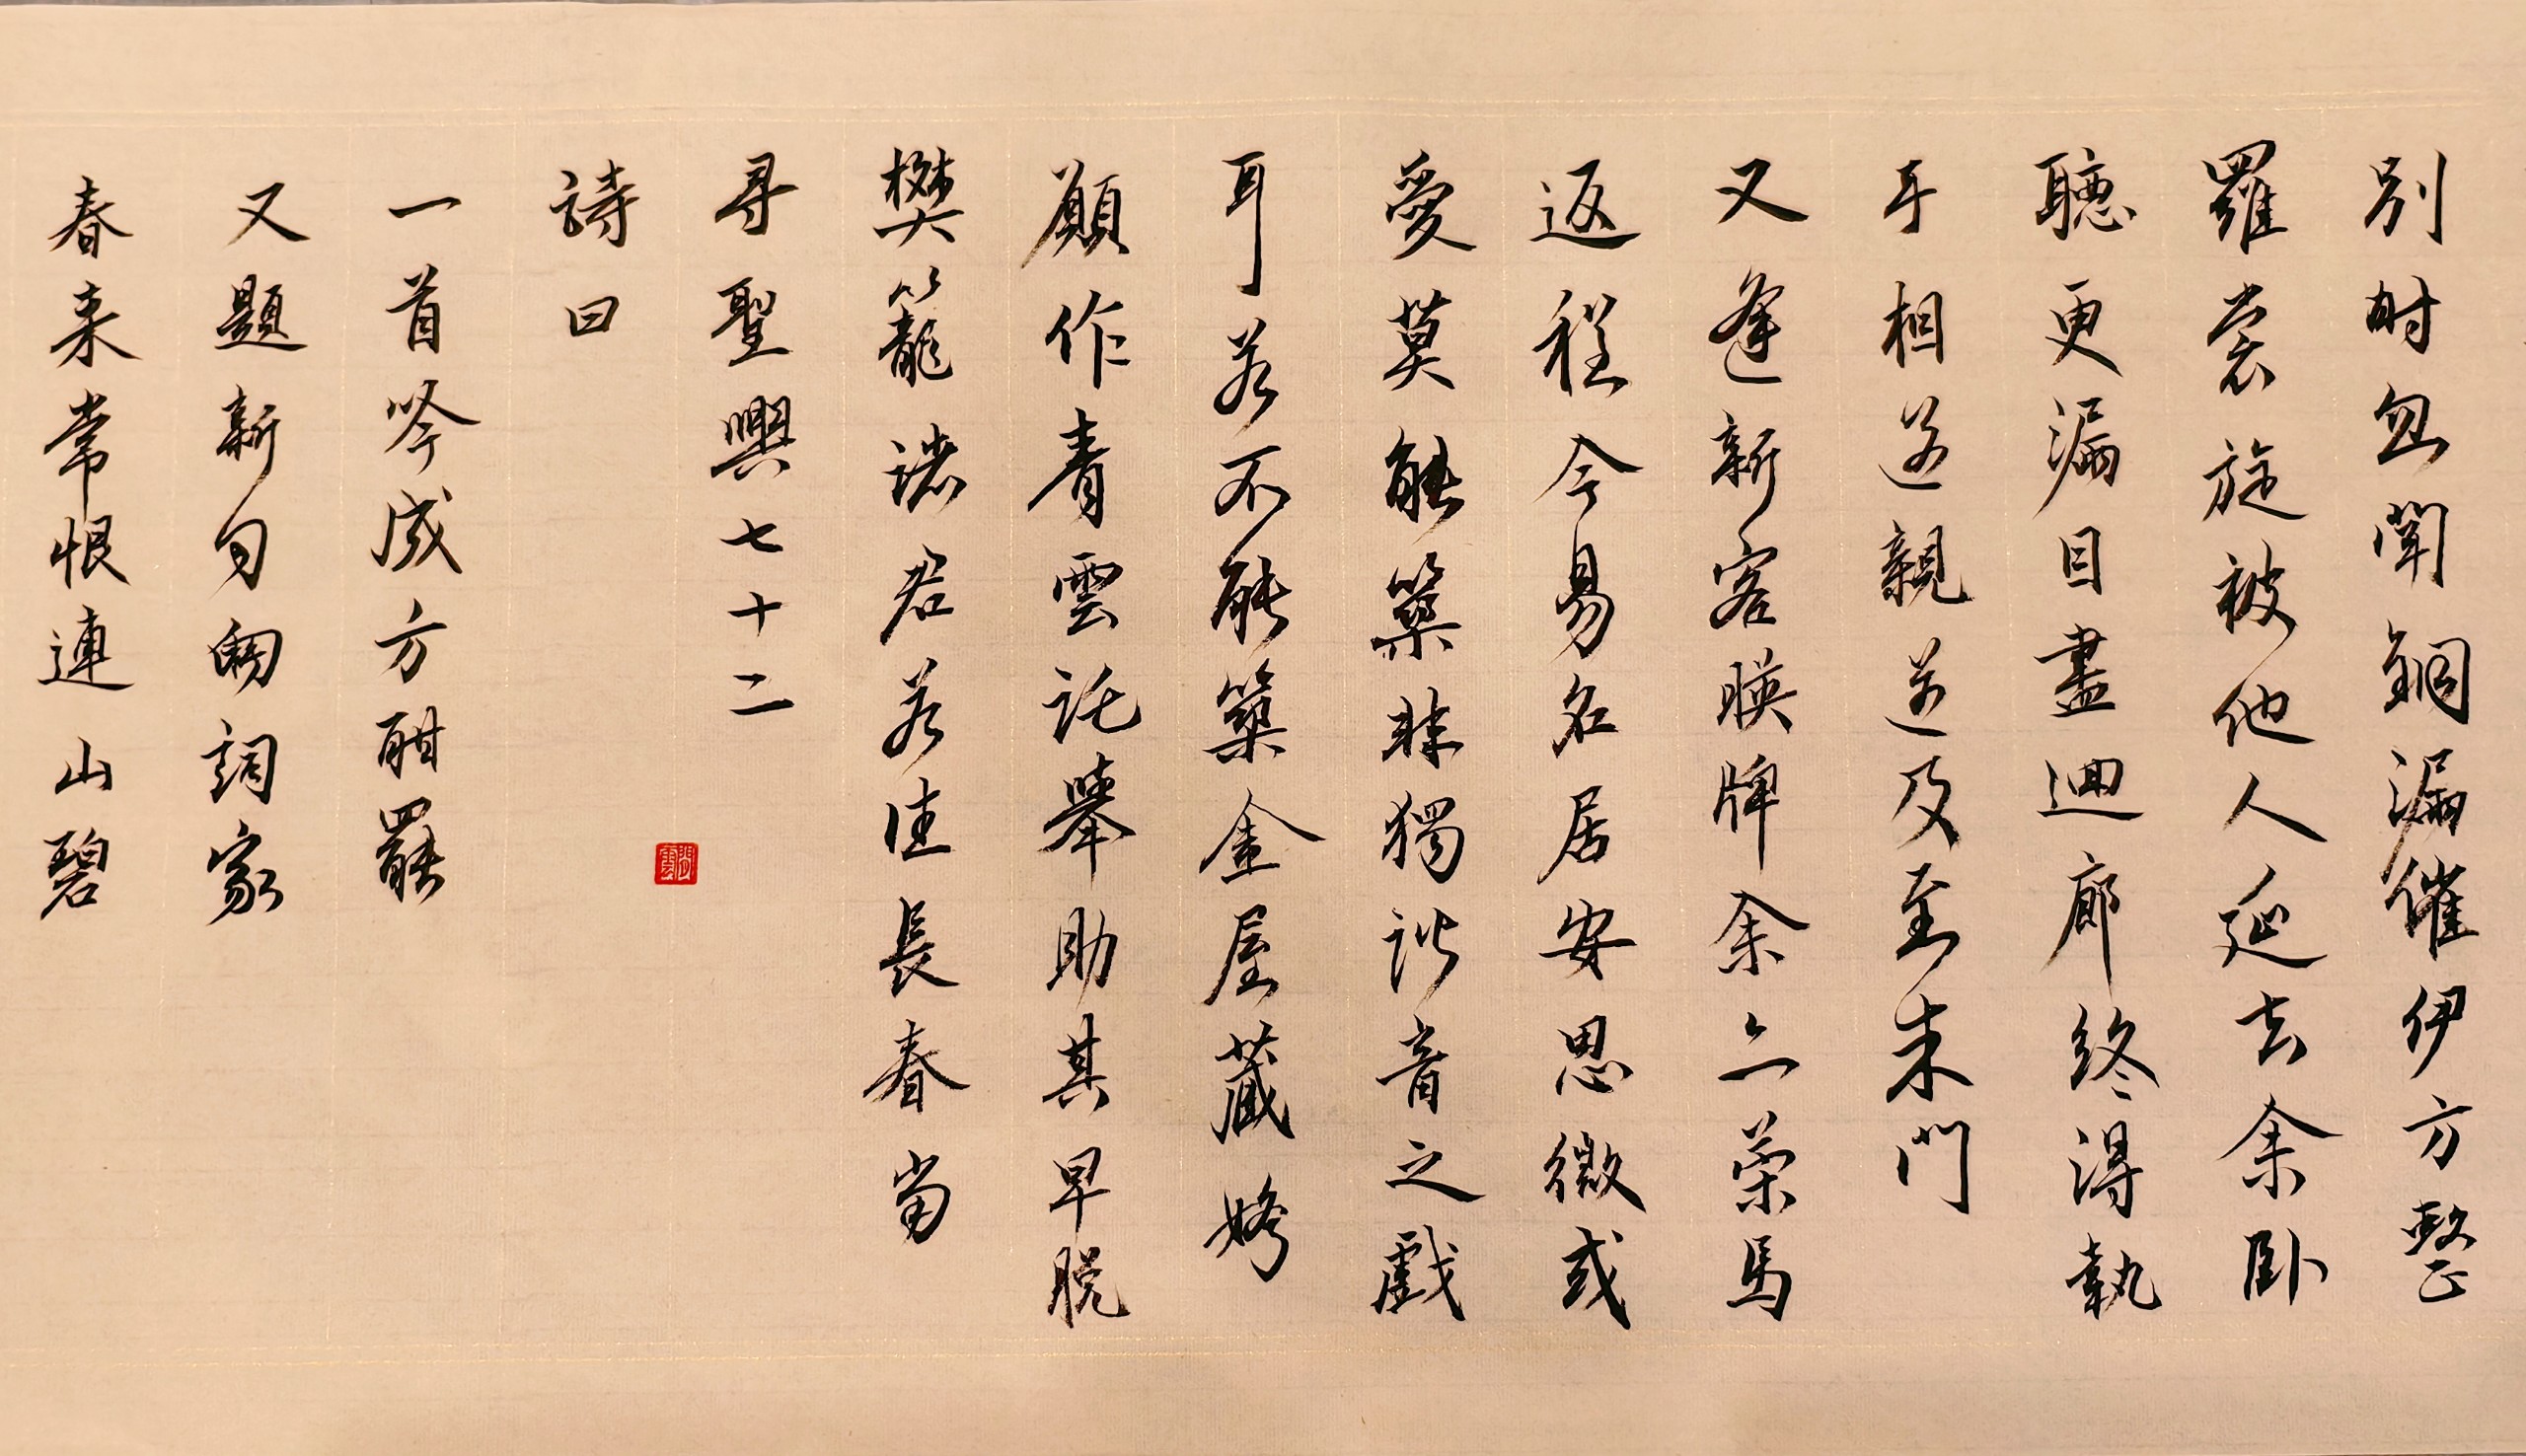 別時忽聞銅漏催伊方整
羅裳旋被他人延去余臥
聽更漏目盡迴廊終得執
手相送親送及至朱門
又逢新客暎牌余亦策馬
返程今易名居安思微或
愛莫能築昧獨諧音之戲
耳若不能築金屋藏嬌
願作青雲託舉助其早脫
樊籠諸君若佳長春當
尋聖興七十二
詩曰
一首吟成方酣罷
又題新句詞家
春來常恨連山碧